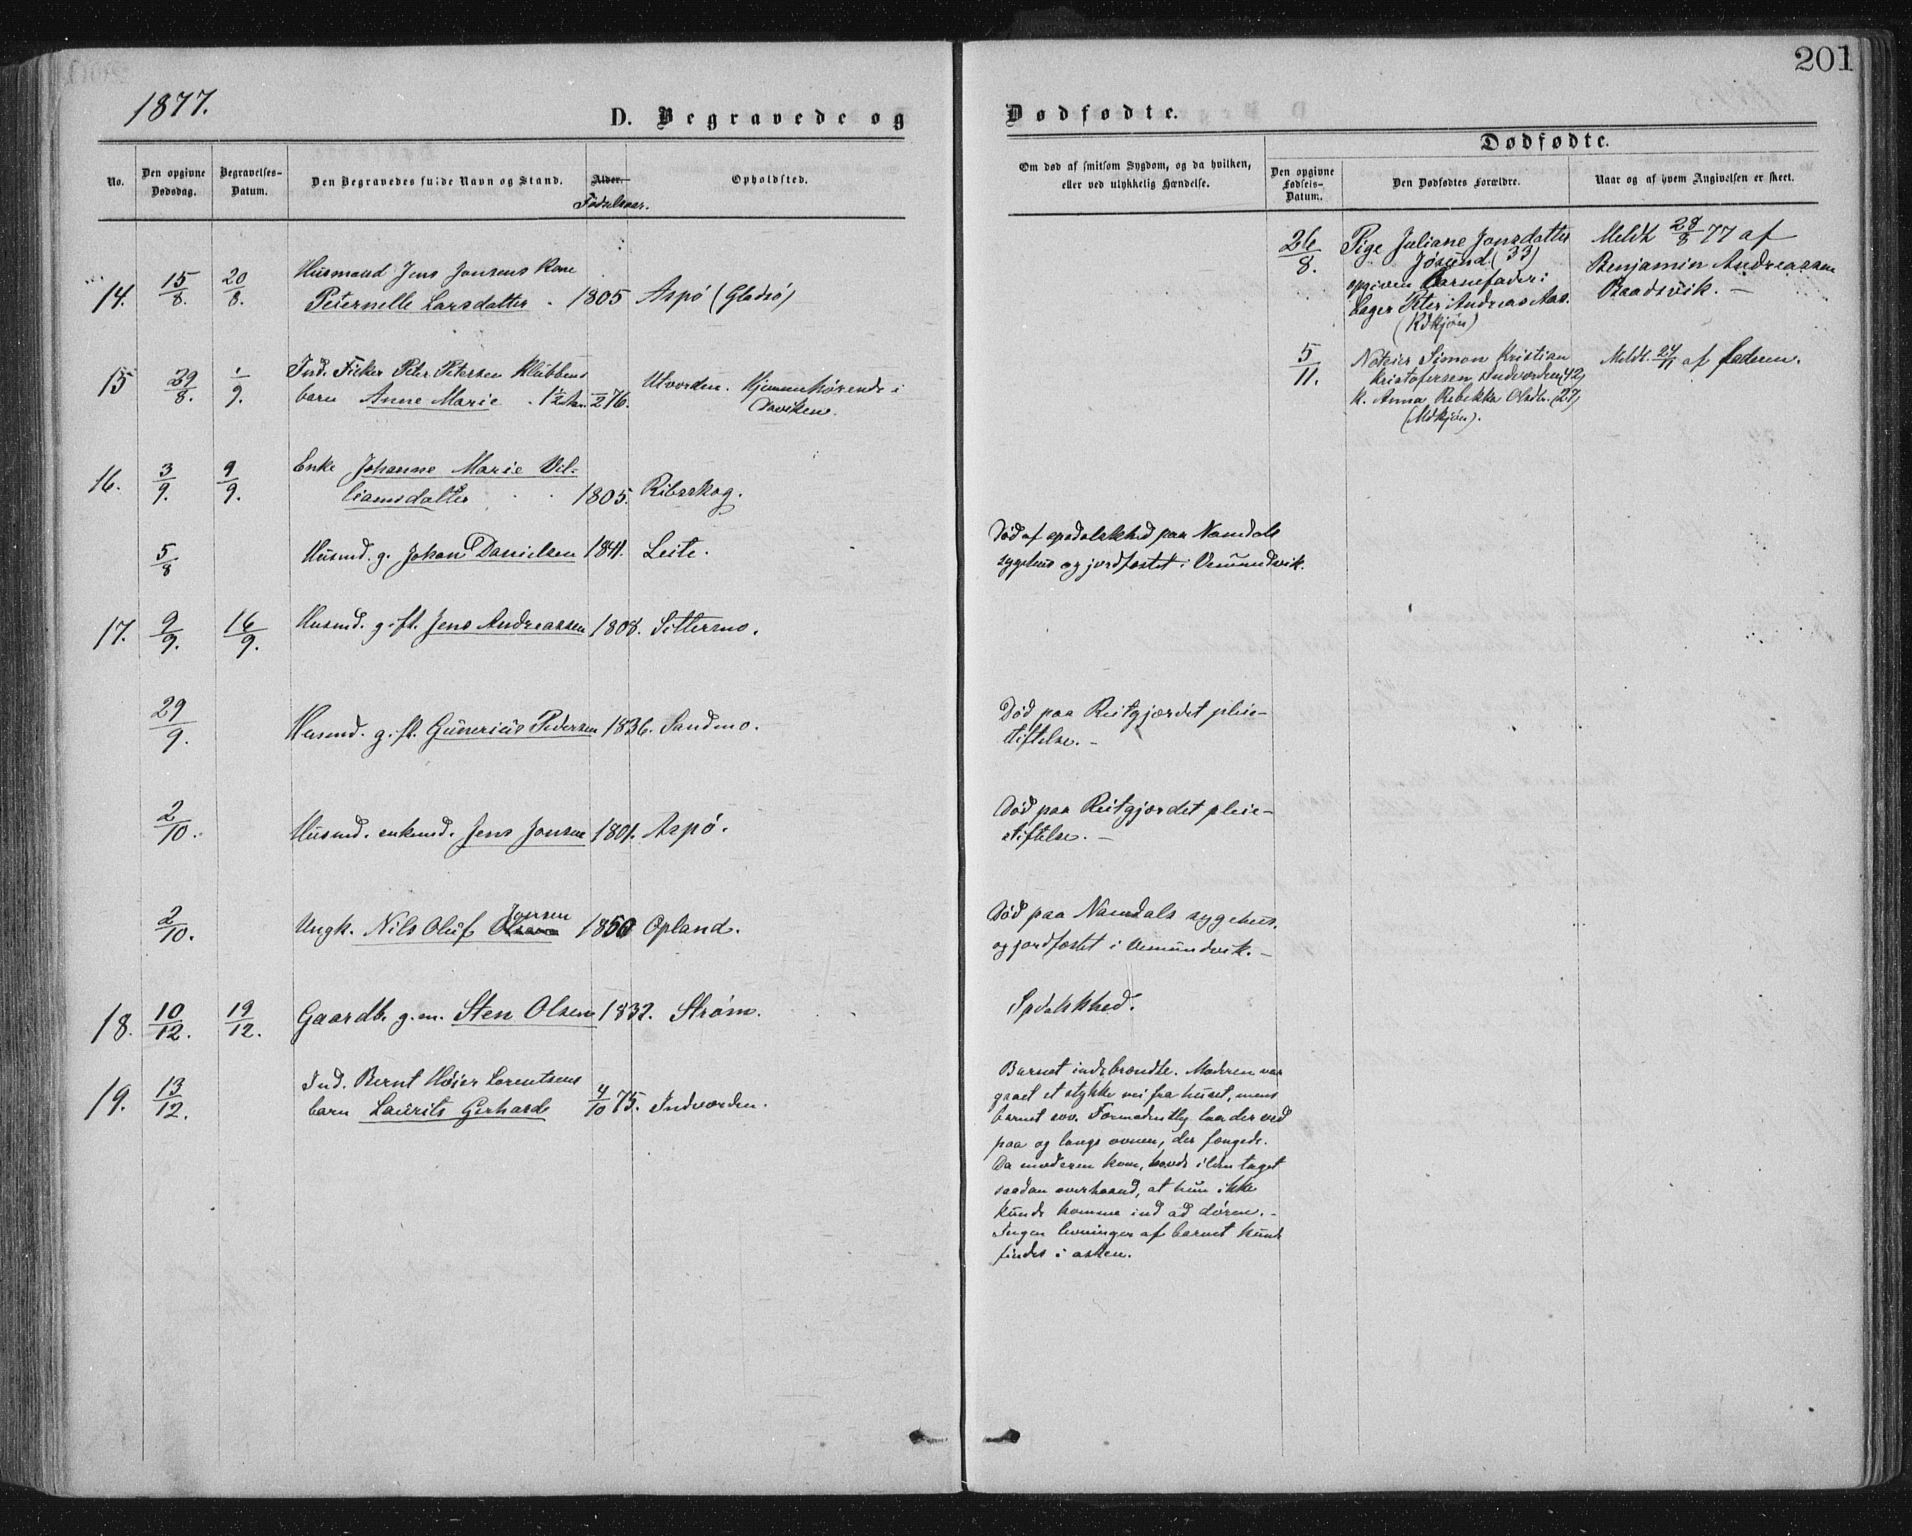 201
1877.
D. Begravede og
Dødfødte.
No.
Den opgivne Dødsdag.
Begravelses-Datum.
Den Begravedes fulde Navn og Stand.
Alder.
Fødselsaar.
Opholdsted.
Om død af smitsom Sygdom, og da hvilken,
eller ved ulykkelig Hændelse.
Dødfødte.
Den opgivne Fødsels-Datum.
Den Dødfødtes Forældre.
Naar og af hvem Angivelsen er skeet.
14. 15/8. 20/8. Husmand Jens Jonsens Kone
Peternelle Larsdatter. 1805 Aspø (Gladsø)
15 29/8. 1/9. Ind. Fisker Peter Petersen Klubbens
barn Anne Marie. 1/2 76. Utvorden. Hjemmehørende i
16. 3/9. 9/9. Enke Johanne Marie Vil-
liamsdatter 1805. Ribsskog.
5/8 Husmd. g. Johan Danielsen 1841. Leite.
Død af spedalskhed paa Namdals
sygehus og jordfæstet i Vemundvik.
17. 9/9. 16/9. Husmd. gift. Jens Andreassen 1808. Sittermo.
29/9. Husmd. gift. Gunerius Pedersen 1836. Sandmo.
Død paa Reitgjærdet pleie-
stiftelse. -
2/10. Husmd. enkemd. Jens Jonsen 1801. Aspø.
Død paa Reitgjærdet pleie-
stiftelse. -
2/10. Ungk. Nils Oluf Jonsen 1850 Opland.
Død paa Namdals sygehus,
og jordfæstet i Vemundvik. -
18. 10/12. 19/12. Gaardb. g.m. Sten Olsen 1832. Strøm.
Spdalskhed.
19. 13/12. Ind. Bernt Høier Lorentsens
barn Laurits Gerhard 4/10 75. Indvorden.
Barnet indebrændte. Moderen var
gaaet et stykke vei fra huset, mens
barnet sov. Formodentlig laa der ved
paa og langs ovnen, der fængede.
Da moderen kom, havde ilden taget
saadan overhaand, at hun ikke
kunde komme ind ad døren. -
Ingen levninger af barnet kunde
findes i asken.
26/8. Pige Juliane Jonsdatter
Jøsund (33)
opgiven barnefader:
Peter Andreas Aas.
Meldt 28/8 77 af
Benjamin Andreassen
Baadsvik. -
5/11. Simon Kristian
Kristofersen Indvorden (42)
K. Anna Rebekka Olsdtr. (27)
(Mdkjøn).
Meldt. 24/11 af faderen.